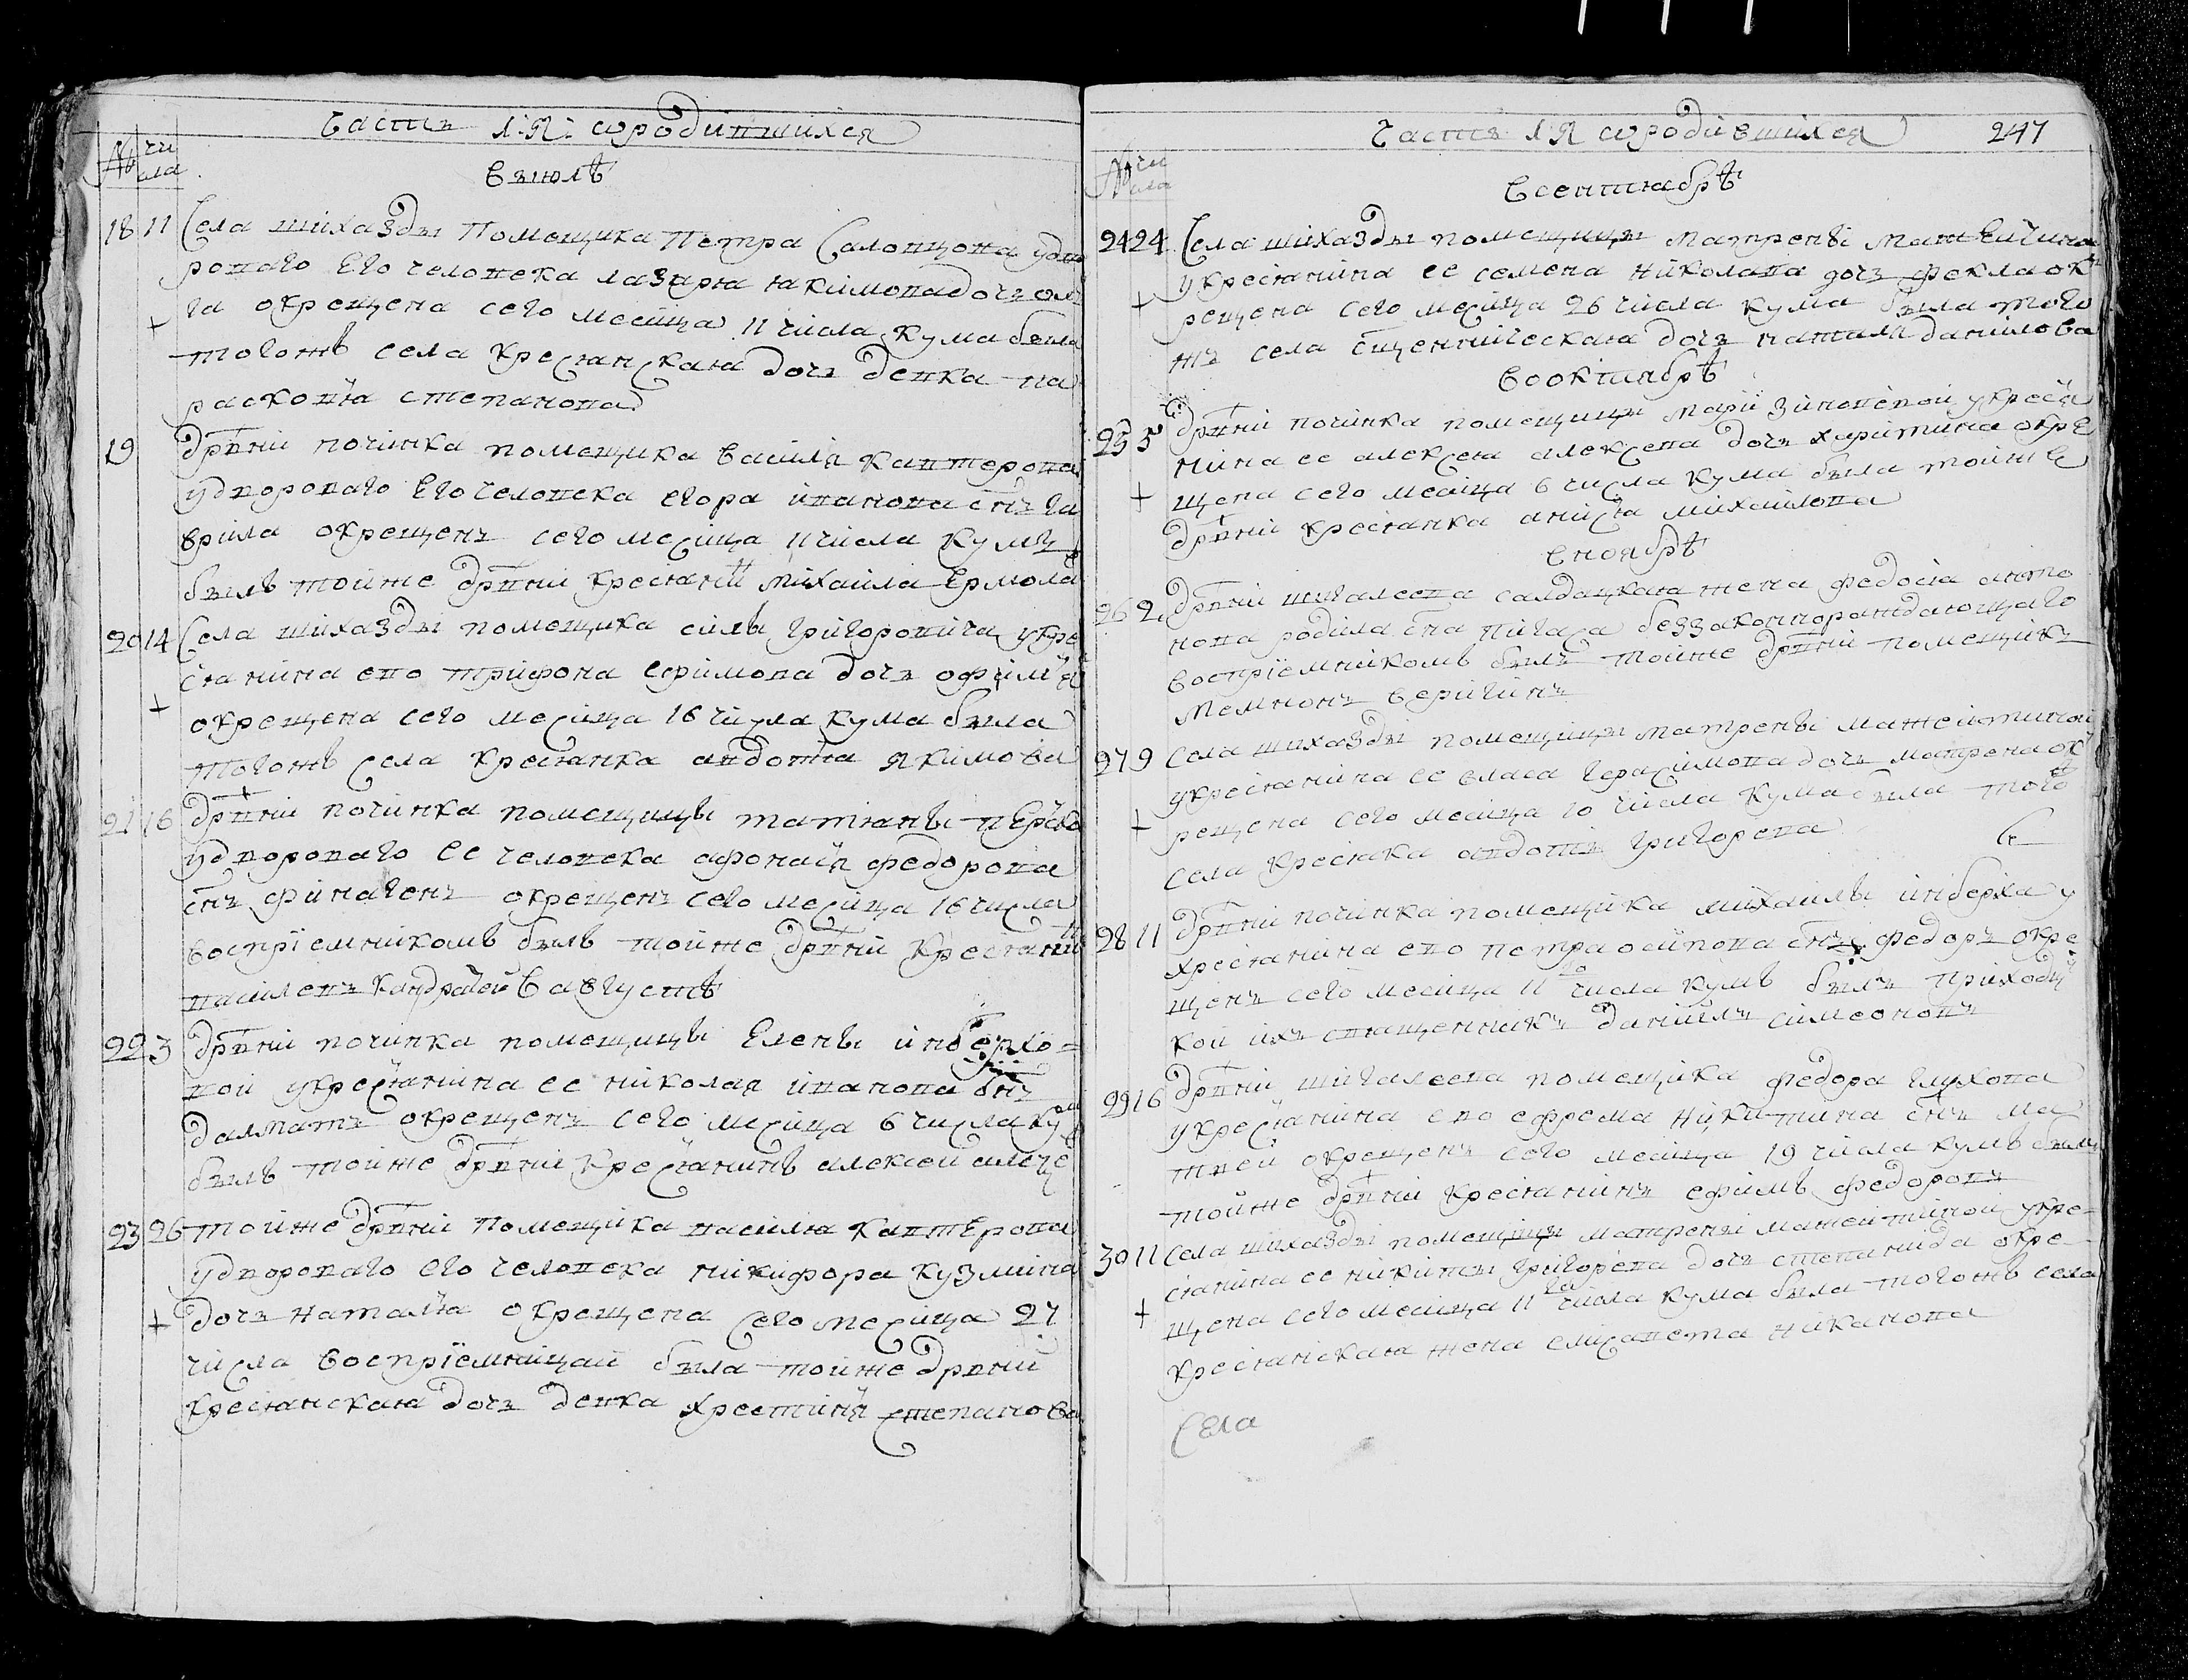 Часть 1:Я: ѡ родившихся
№ чи сла
Виюлѣ
18 11 Села шихазды помещика Петра Салопцова у дво
роваго Его человека лазаря якимова дочь ол
га окрещена сего месяца 11 числа кума была
тогожъ села крестянская дочь девка па
расковя степанова
19 дрвни починка помещика василя кантерова
удвороваго Его человека егора иванова снъ га
врила окрещенъ сего месяца 11 числа кумъ
былъ тойже дрвни крестянин михаила Ермола
20 14 Села шихазды помещика силы григоровича укре
стянина ево трифона ефимова дочь офимя
окрещена сего месяца 16 числа кума была
тогожъ села крестянка авдотя якимова
21 16 дрвни починка помещицы татяны
удвороваго ее человека афонася федорова
снъ финагенъ окрещенъ сего месяца 16 числа
восприемникомъ былъ тойже дрвни крестянин
василей кандратей Вавгустѣ
22 3 дрвни починка помещицы Елены инберхо=
вой укрестянина ее николая иванова снъ
далматъ окрещенъ сего месяца 6 числа кум
былъ тойже дрвни крестянинъ алексей алеѯе
23 26 тойже дрвни помещика василя кантерова
удвороваго его человека никифора кузмина
дочь наталя окрещена сего месяца 27
числа восприемницаи была тойже дрвни
крестянская дочь девка хрестиня степанова
Часть 1 Я ѡ родившихся 247
№ чи сла
Всентябрѣ
24 24 Села шихазды помещицы матрены мажеитина
укрестянина ее семена николава дочь фекла ок
рещена сего месяца 26 числа кума была того
жъ села сщенническая дочь наталя данилова
Вооктябрѣ
25 5 дрвни починка помещицы марии зиновевой укрестя
нина ее алексея алексева дочь харитина окре
щена сего месяца 6 числа кума была тойже
дрвни крестянка анися михаилова
Вноябрѣ
26 2 дрвни шигалеева салдацкая жена федосия анто
нова родила сна пигаса беззаконнораждающаго
восприемникомъ былъ тойже дрвни помещикъ
мемнонъ веригинъ
27 9 Села шихазды помещицы матрены мажеитинои
укрестянина ее власа герасимова дочь матрена ок
рещена сего месяца 10 числа кума была того
села крестянка авдотя григорева
28 11 дрвни починка помещика михаилы инберха у
хрестянина ево петра осипова снъ федоръ окре
щенъ сего месяца 11 го числа кумъ былъ приходц
кой ихъ священникъ даниилъ симеоновъ
29 16 дрвни шигалеева помещика федора глухова
укрестянина ево ефрема никитина снъ ма
твей окрещенъ сего месяца 19 числа кумъ былъ
тойже дрвни крестянинъ ефимъ федоровъ
30 11 Села шихазды помещицы матрены мажеитиной укре=
стянина ее никиты григорева дочь степанида окре
щена сего месяца 11 го числа кума была тогожъ села
крестянская жена елисавета никанова
Села